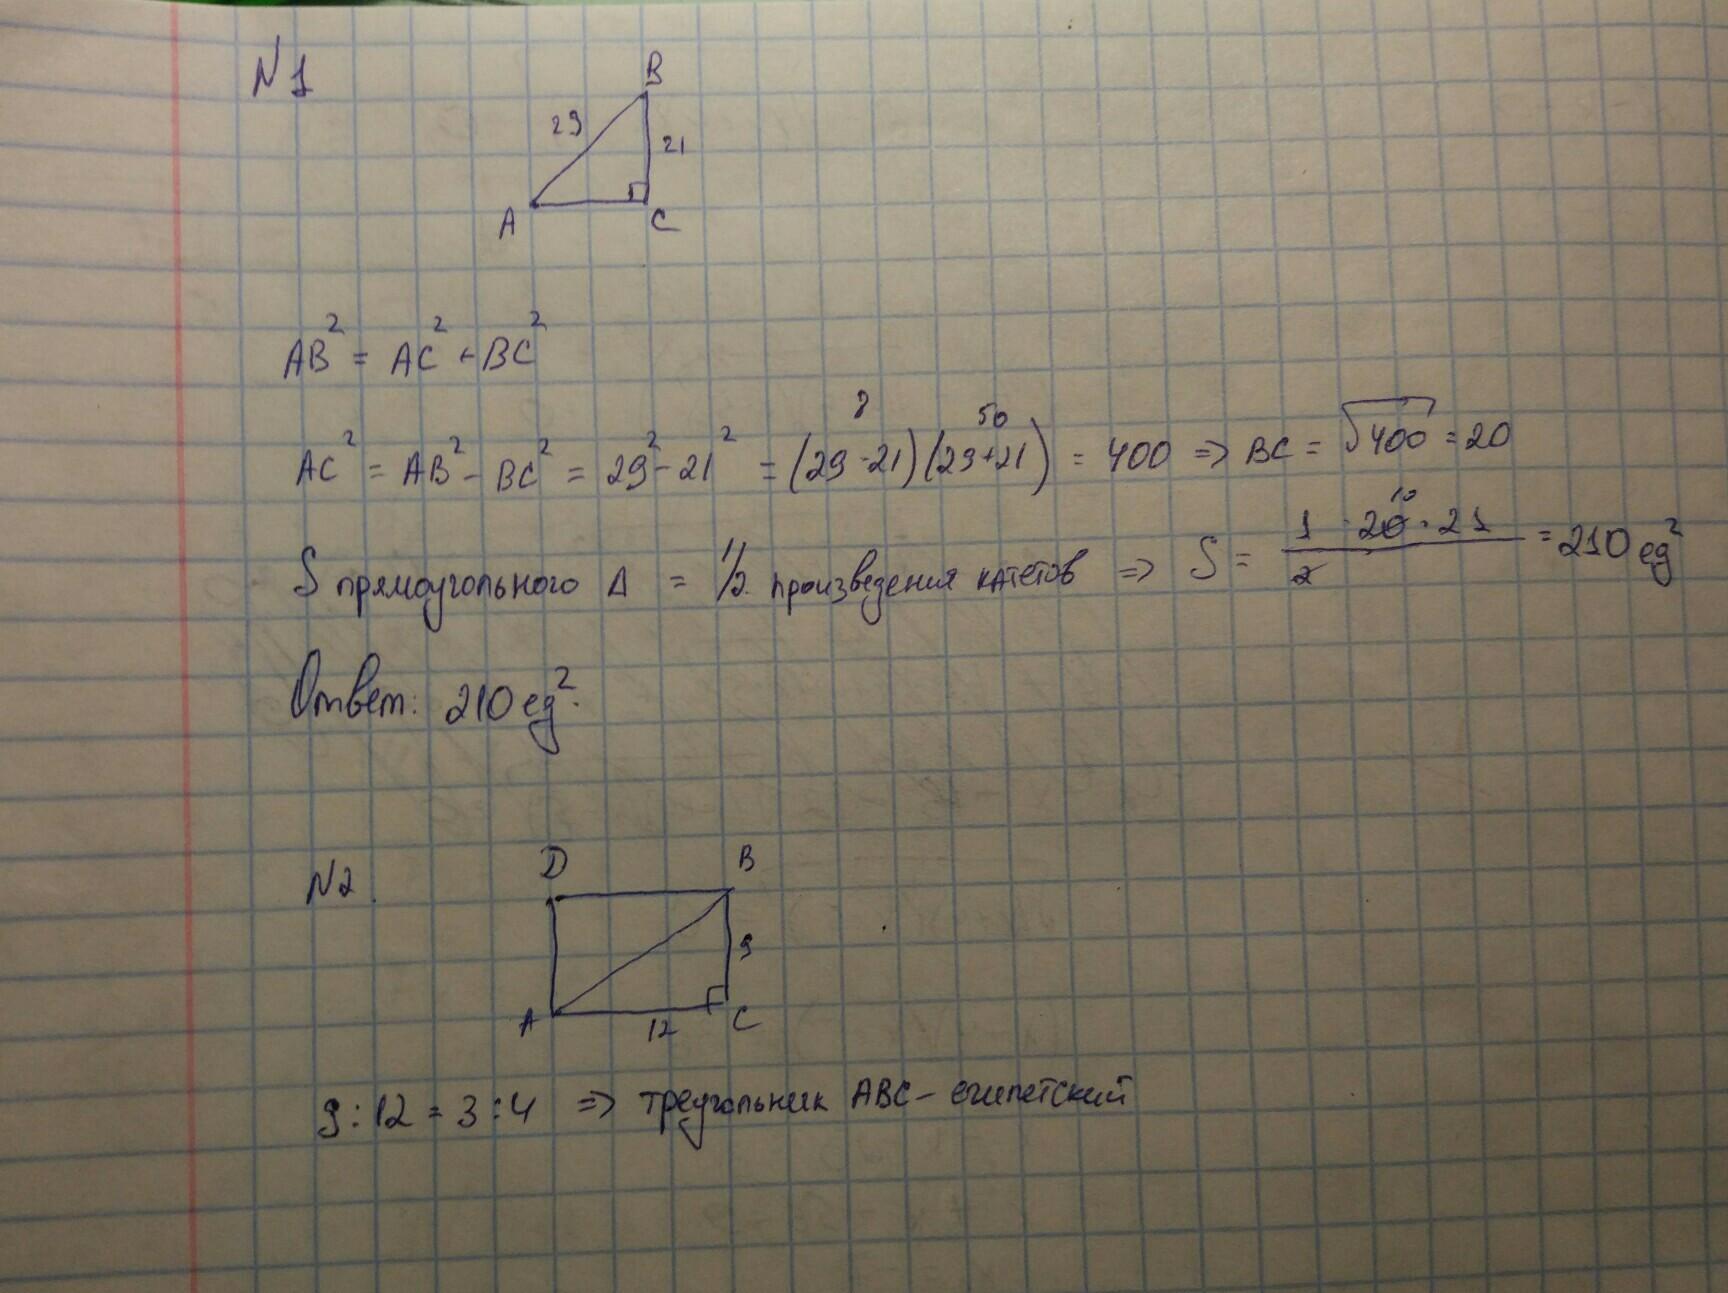 N1
B
29
21
A
C
AB² = AC² + BC²
8 50
AC² = AB² - BC² = 29² - 21² = (29-21)(29+21) = 400 => BC = √400 = 20
S прямоугольного Δ = 1/2 произведения катетов => S = (1 · 20 · 21)/2 = 210 ед²
10
Ответ: 210 ед².
N2.
D
B
9
A
12
C
9:12 = 3:4 => треугольник ABC - египетский